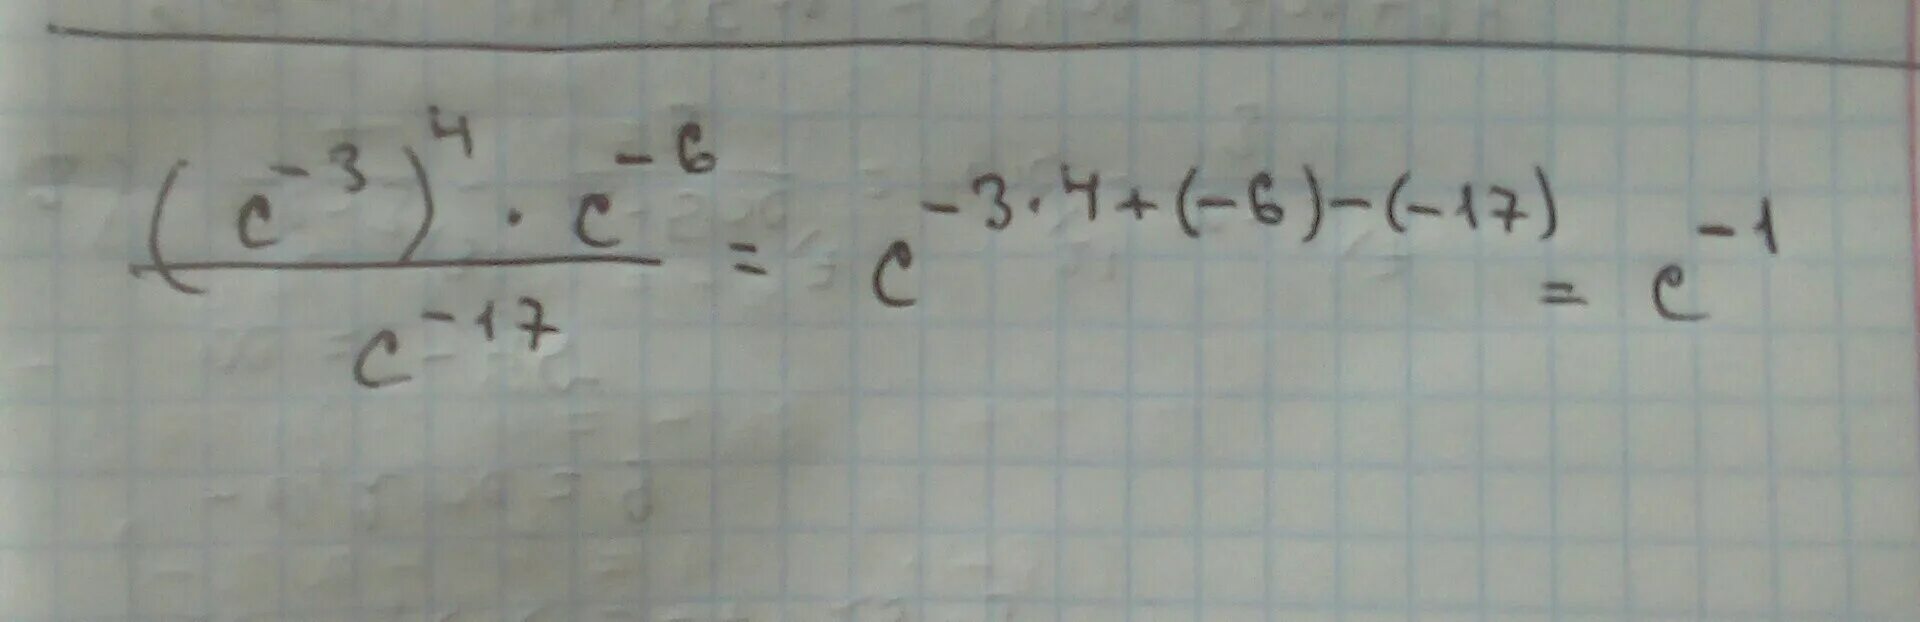 (c⁻³)⁴ · c⁻⁶ / c⁻¹⁷ = c⁻³·⁴⁺⁽⁻⁶⁾⁻⁽⁻¹⁷⁾ = c⁻¹